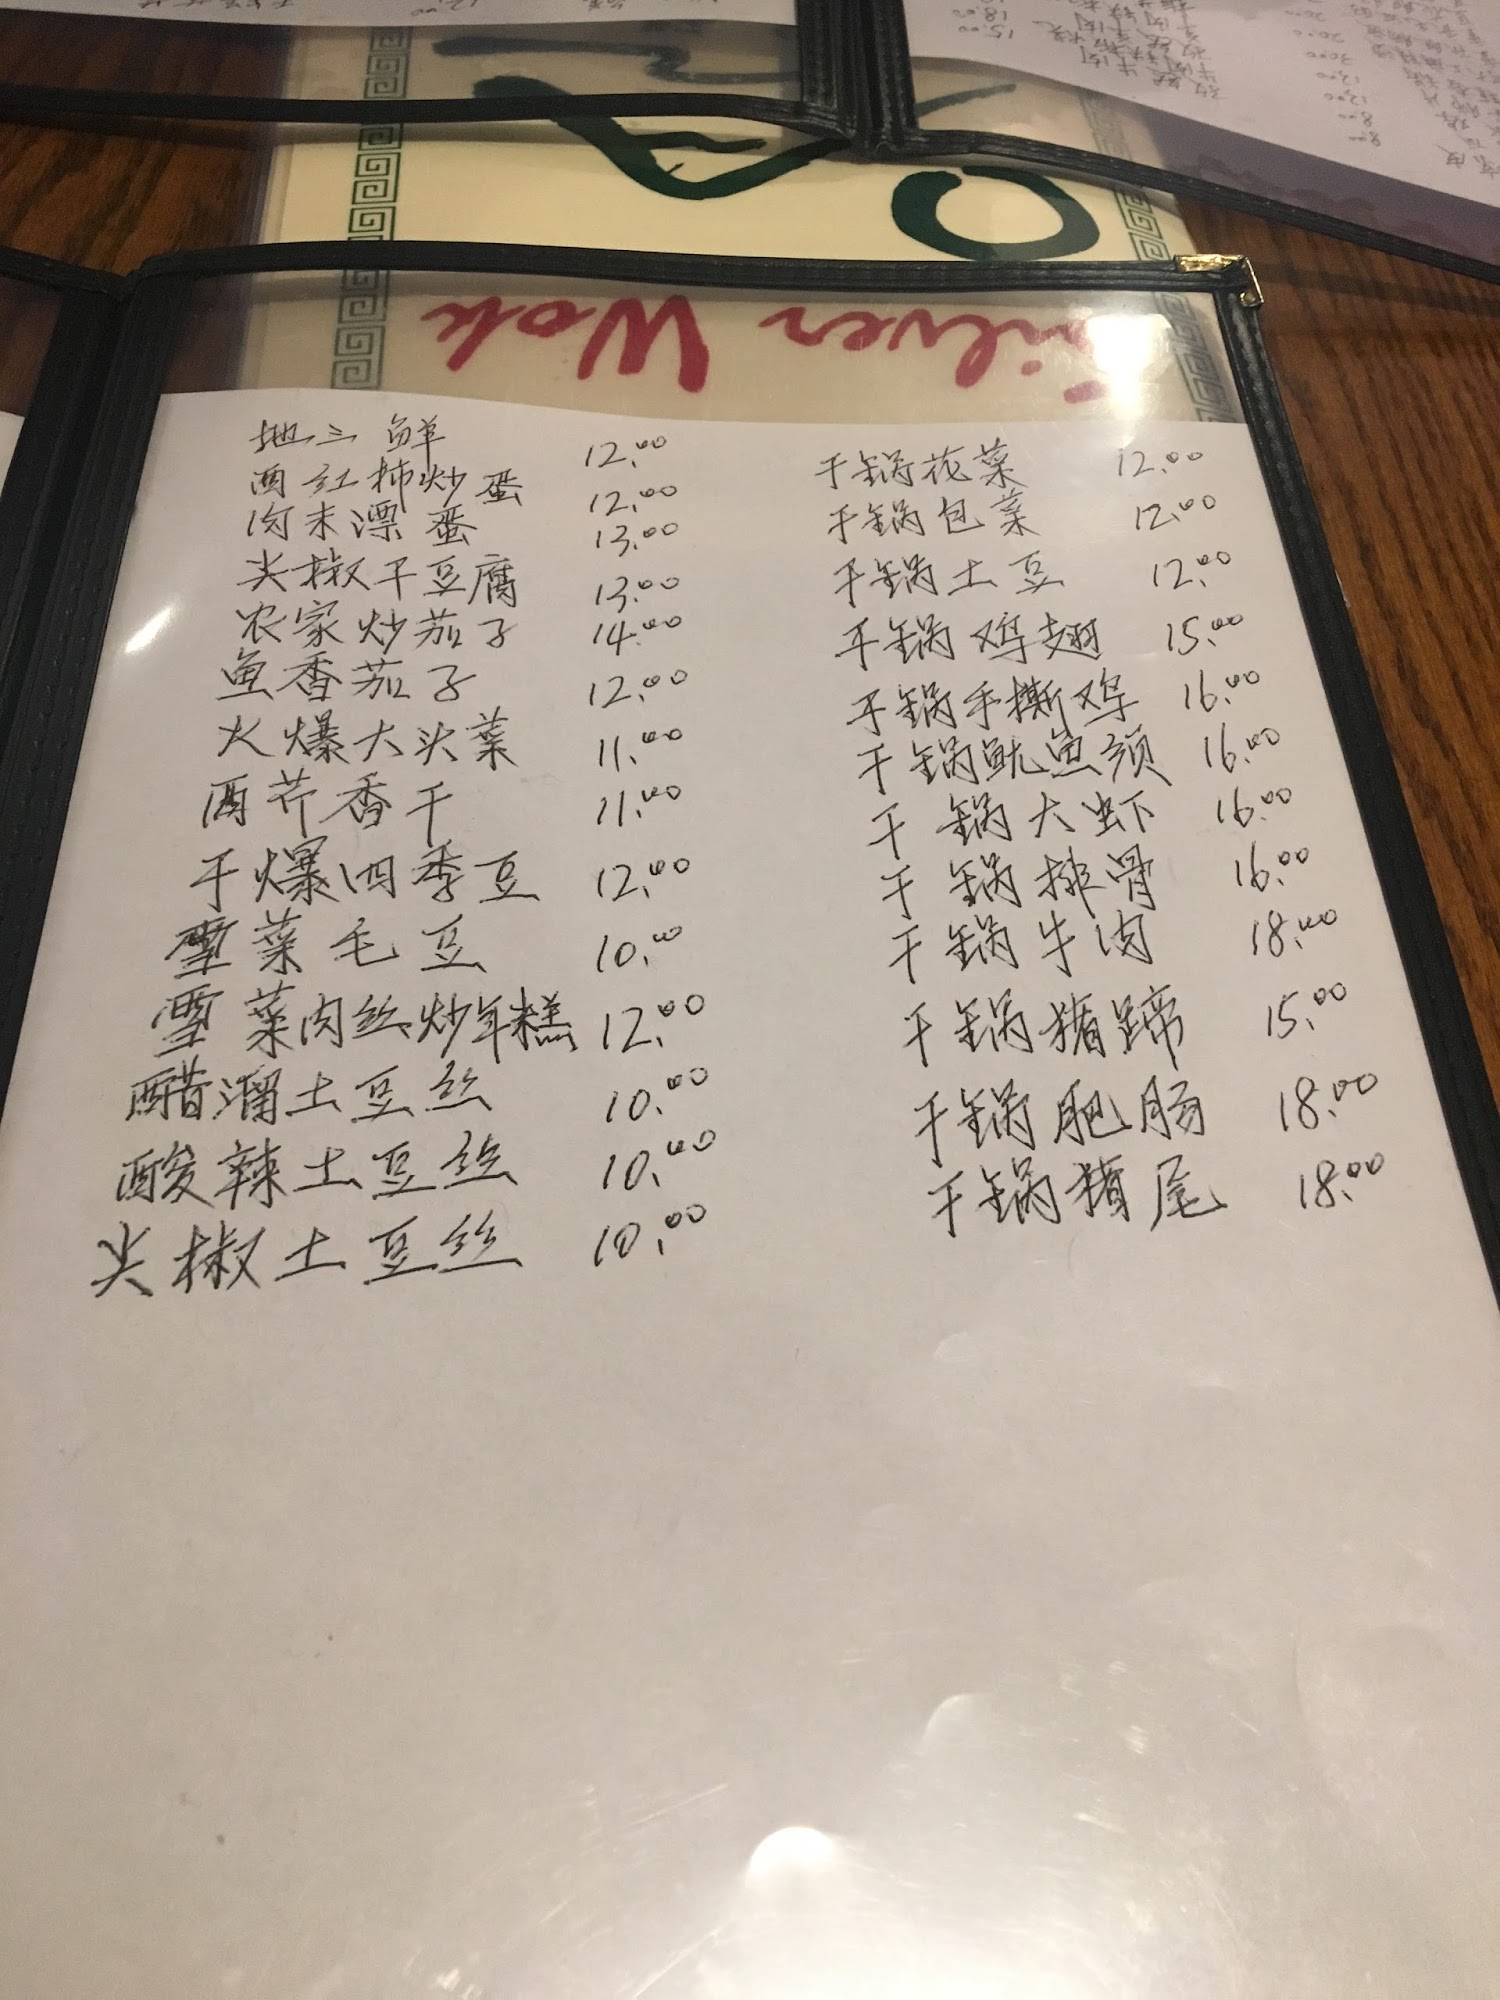 Silver Wok
地三鲜 12.00
西红柿炒蛋 12.00
肉末漂蛋 13.00
尖椒干豆腐 13.00
农家炒茄子 14.00
鱼香茄子 12.00
火爆大头菜 11.00
西芹香干 11.00
干爆四季豆 12.00
雪菜毛豆 10.00
雪菜肉丝炒年糕 12.00
醋溜土豆丝 10.00
酸辣土豆丝 10.00
尖椒土豆丝 10.00
干锅花菜 12.00
干锅包菜 12.00
干锅土豆 12.00
干锅鸡翅 15.00
干锅手撕鸡 16.00
干锅鱿鱼须 16.00
干锅大虾 16.00
干锅排骨 16.00
干锅牛肉 18.00
干锅猪蹄 15.00
干锅肥肠 18.00
干锅猪尾 18.00